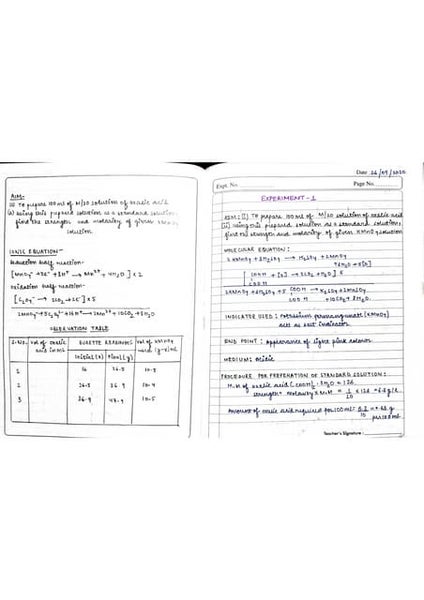 AIM:
(i) To prepare 100 ml of M/20 solution of oxalic acid
(ii) Using this prepared solution as a standard solution,
find the strength and molarity of given KMnO4
solution.
IONIC EQUATION-
Reduction half reaction-
[MnO4⁻ + 5e⁻ + 8H⁺ → Mn²⁺ + 4H2O] × 2
Oxidation half reaction-
[C2O4²⁻ → 2CO2 + 2e⁻] × 5
OBSERVATION TABLE
S.No. Vol of oxalic acid in ml BURETTE READINGS Vol of KMnO4 used (y-x) ml
Initial (x) Final (y)
1 16 26.5 10.5
2 26.5 36.9 10.4
3 36.9 47.4 10.5
Date
Expt. No. Page No.
EXPERIMENT-1
AIM: (i) To prepare 100 ml of M/20 solution of oxalic acid
(ii) Using this prepared solution as a standard solution,
find the strength and molarity of given KMnO4 solution
MOLECULAR EQUATION:
2KMnO4 + 3H2SO4 → K2SO4 + 2MnSO4
+ 3H2O + 5[O]
INDICATOR USED: Potassium permanganate (KMnO4)
acts as self indicator
END POINT: Appearance of light pink colour
MEDIUM: Acidic
PROCEDURE FOR PREPARATION OF STANDARD SOLUTION:
M.M of oxalic acid
Strength = Molarity × M.M = 1/20 × 126 = 6.3 g/L
Amount of oxalic acid required for 100 ml:
per 100 ml
Teacher's Signature :